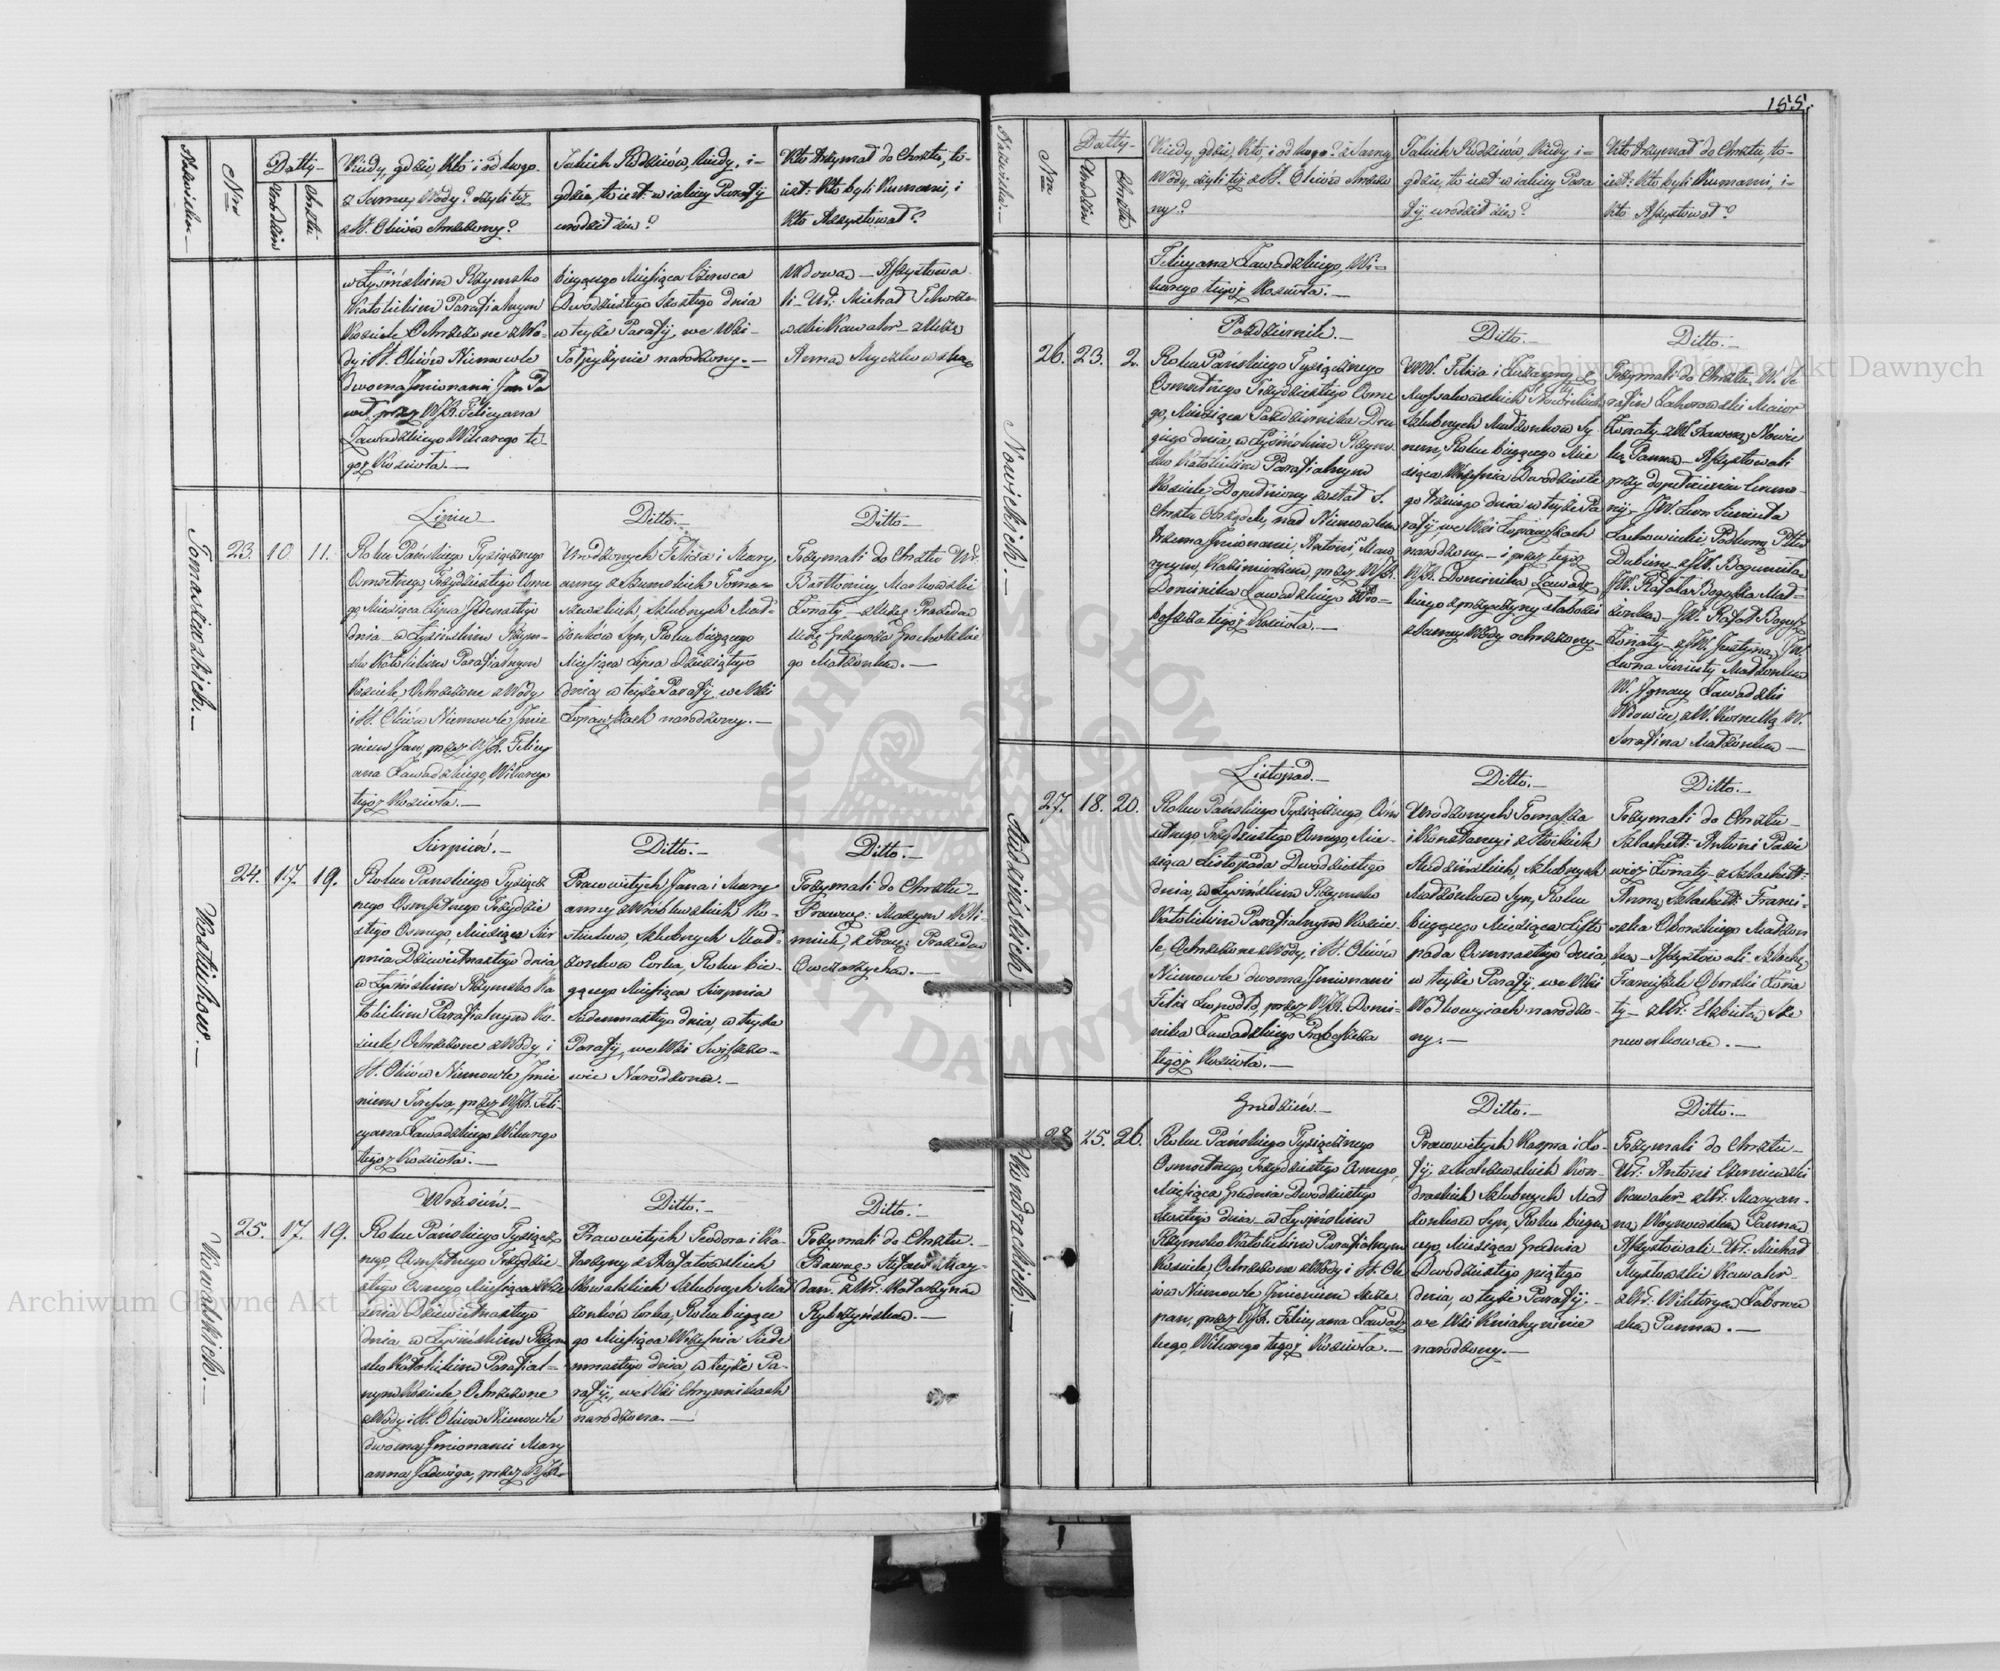 155.
Nazwisko
Nro
Datty
Urodzin
Chrztu
Kiedy, gdzie, kto i od kogo
z Samey Wody? czyli też
z St. Olejów chrzczony?
Jakich Rodziców, kiedy, i
gdzie, to iest w iakiey Parafij
urodził się?
Kto trzymał do Chrztu, to
iest: Kto byli Kumami, i
Kto Assystował?
w Łysińskim Rzymsko
Katolickim Parafialnym
Kosciele Ochrzczone z Wo-
dy i St. Olejów Niemowle
dwoma Jmionami Jan Pa
weł, przez WJX. Felicyana
Zawadzkiego Wikarego te-
goż Koscioła.—
bieżącego Miesiąca Czerwca
Dwódziestego Szostego dnia
w teyże Parafij, we Wsi
narodzony.—
Wdowa — Assystowa
li — Ur: Michał
Kawaler — z
Anna
Tomaszewskich.—
23. 10 11.
Lipiec
Roku Pańskiego Tysiącznego
Osmsetnego, Trzydziestego Osme
go, Miesiąca Lipca Jedenastego
dnia — w Łysińskim Rzym-
sko Katolickim Parafialnym
Kosciele, Ochrzczone z Wody,
i St. Olejów Niemowle Jmie
niem Jan, przez WJX. Felicy
ana Zawadzkiego, Wikarego
tegoż Koscioła.—
Ditto.—
Urodzonych Felixa i Mary
anny z Szumskich Toma-
szewskich, Szlubnych Mał-
żonków Syn, Roku bieżącego
Miesiąca Lipca Dziesiątego
dnia, w teyże Parafij, we Wsi
narodzony.—
Ditto.—
Trzymali do Chrztu Ur:
Bartłomiey Markowski
Żonaty — z
Grzegorza Grocholskie
go Małżonka.—
Kostiukow.—
24. 17. 19.
Sierpień.—
Roku Pańskiego Tysiącz
nego Osmsetnego Trzydzie
stego Osmego, Miesiąca Sier
pnia Dziewietnastego dnia
w Łysińskim Rzymsko Ka
tolickim Parafialnym Ko-
sciele Ochrzczone z Wody, i
St. Olejów Niemowle Jmie
niem Teressa, przez WJX. Feli-
cyana Zawadzkiego Wikarego
tegoż Koscioła.—
Ditto.—
Pracowitych Jana i Mary
anny z Wróblewskich Ko-
stiuków, Szlubnych Mał-
żonków Corka, Roku bie-
żącego Miesiąca Sierpnia
Siedemnastego dnia, w teyże
Parafij, we Wsi
Narodzona.—
Ditto.—
Trzymali do Chrztu
Pracow:
z Pracy: Praxeda
Owczarzycha.—
Kowalskich.—
25. 17. 19.
Wrzesień.—
Roku Pańskiego Tysiącz
nego, Osmsetnego Trzydzie-
stego Osmego, Miesiąca Wrze
śnia Dziewietnastego
dnia, w Łysińskim Rzym
sko Katolickim Parafial-
nym Kosciele Ochrzczone
z Wody i St. Olejów Niemowle
dwoma Jmionami Mary
anna Jadwiga, przez WJX.
Ditto.—
Pracowitych Teodora i Ka-
tarzyny z
Kowalskich Szlubnych Mał
żonków Corka, Roku bieżące
go Miesiąca Września Siede
mnastego dnia, w teyże Pa-
rafij, we Wsi
narodzona.—
Ditto.—
Trzymali do Chrztu.—
Pracow: Stefan
z Ur: Katarzyna
Rybczyńska.—
Nazwisko.
Nro
Datty
Urodzin
Chrztu
Kiedy, gdzie, Kto, i od kogo? z Samey
Wody, czyli też z St. Olejów chrzczo
ny?
Jakich Rodziców, Kiedy i
gdzie, to iest w iakiey Para
fij urodził się?
Kto trzymał do Chrztu, to-
iest: Kto byli Kumami, i-
Kto Assystował?
Felicyana Zawadzkiego, Wi-
karego tegoż Koscioła.—
Nowickich.—
26. 23. 2.
Pazdziernik.—
Roku Pańskiego Tysiącznego
Osmsetnego Trzydziestego Osme
go, Miesiąca Pazdziernika Dru
giego dnia, w Łysińskim Rzym-
sko Katolickim Parafialnym
Kosciele, Dopełniony został S.
Chrztu Obrządek, nad Niemowlem
trzema Jmionami, Antoni,
Kazimierzem, przez WJX.
Dominika Zawadzkiego Pro-
boszcza tegoż Koscioła.—
Ditto.—
Nowickich
Szlubnych Małżonków Sy-
nem, Roku bieżącego Mie
siąca Wrzesnia Dwódzieste
go trzeciego dnia w teyże Pa
rafij, we Wsi
narodzony — i przez tegoż
WJX. Dominika Zawadz-
kiego z przyczyny słabości
z samey Wody ochrzczony—
Ditto.—
Trzymali do Chrztu, W. Se
rafin Zahorowski Maior
Żonaty — z W. Nowic
ką Panną — Assystowali
przy dopełnieniu Ceremo-
nij — JW.
z JW. Bogumiła
JW. Mał-
żonka — JW. Rafał
Żonaty — z JW. Justyna, JW.
Małżonka
W. Jgnacy Zawadzki
Wdowiec, z W. Kornelią W.
Serafina Małżonka —
Rudzińskich
27. 18. 20.
Listopad.—
Roku Pańskiego Tysiącznego Osm
setnego, Trzydziestego Osmego, Mie-
siąca Listopada Dwódziestego
dnia, w Łysińskim Rzymsko
Katolickim Parafialnym Koscie-
le, Ochrzczone z Wody, i St. Olejów
Niemowle dwoma Jmionami
Felix Leopold, przez WJX. Domi-
nika Zawadzkiego Proboszcza
tegoż Koscioła.—
Ditto.—
Urodzonych Tomasza
i Konstancyi z
Rudzińskich, Szlubnych
Małżonków Syn, Roku
bieżącego Miesiąca Listo
pada Osmnastego dnia
w teyże Parafij, we Wsi
Wołkowyiach narodzo-
ny.—
Ditto.—
Trzymali do Chrztu—
Szlachett: Antoni
Żonaty — z Szlachett:
Anną, Szlachett: Franci-
szka Oborskiego Małżon
ka — Assystowali Szlachet:
Franciszek Oborski Żona
ty — z Ur: Elżbieta
Kondrackich.—
28 25. 26.
Grudzień.—
Roku Pańskiego Tysiącznego
Osmsetnego, Trzydziestego Osmego,
Miesiąca Grudnia Dwódziestego
Szostego dnia — w Łysińskim
Rzymsko Katolickim Parafialnym
Kosciele, Ochrzczone z Wody i St. Ole
jów Niemowle Jmieniem Szcze
pan, przez WJX. Felicyana Zawadz
kiego, Wikarego tegoż Koscioła.—
Ditto.—
Pracowitych Kaspra i Zo-
fij, z Kon-
drackich Szlubnych Mał
żonków Syn, Roku bieżą
cego, Miesiąca Grudnia
Dwódziestego piątego
dnia, w teyże Parafij,
we Wsi Kniahyninie
narodzony.—
Ditto.—
Trzymali do Chrztu—
Ur: Antoni Czerniewski
Kawaler — z Ur: Maryan-
na, Woynowska Panna
Assystowali — Ur: Michał
Mysłowski Kawaler—
z Ur: Wiktorya
Panna.—
Archiwum Główne Akt Dawnych
Archiwum Główne Akt Dawnych
ARCHIWUM GŁÓWNE AKT DAWNYCH